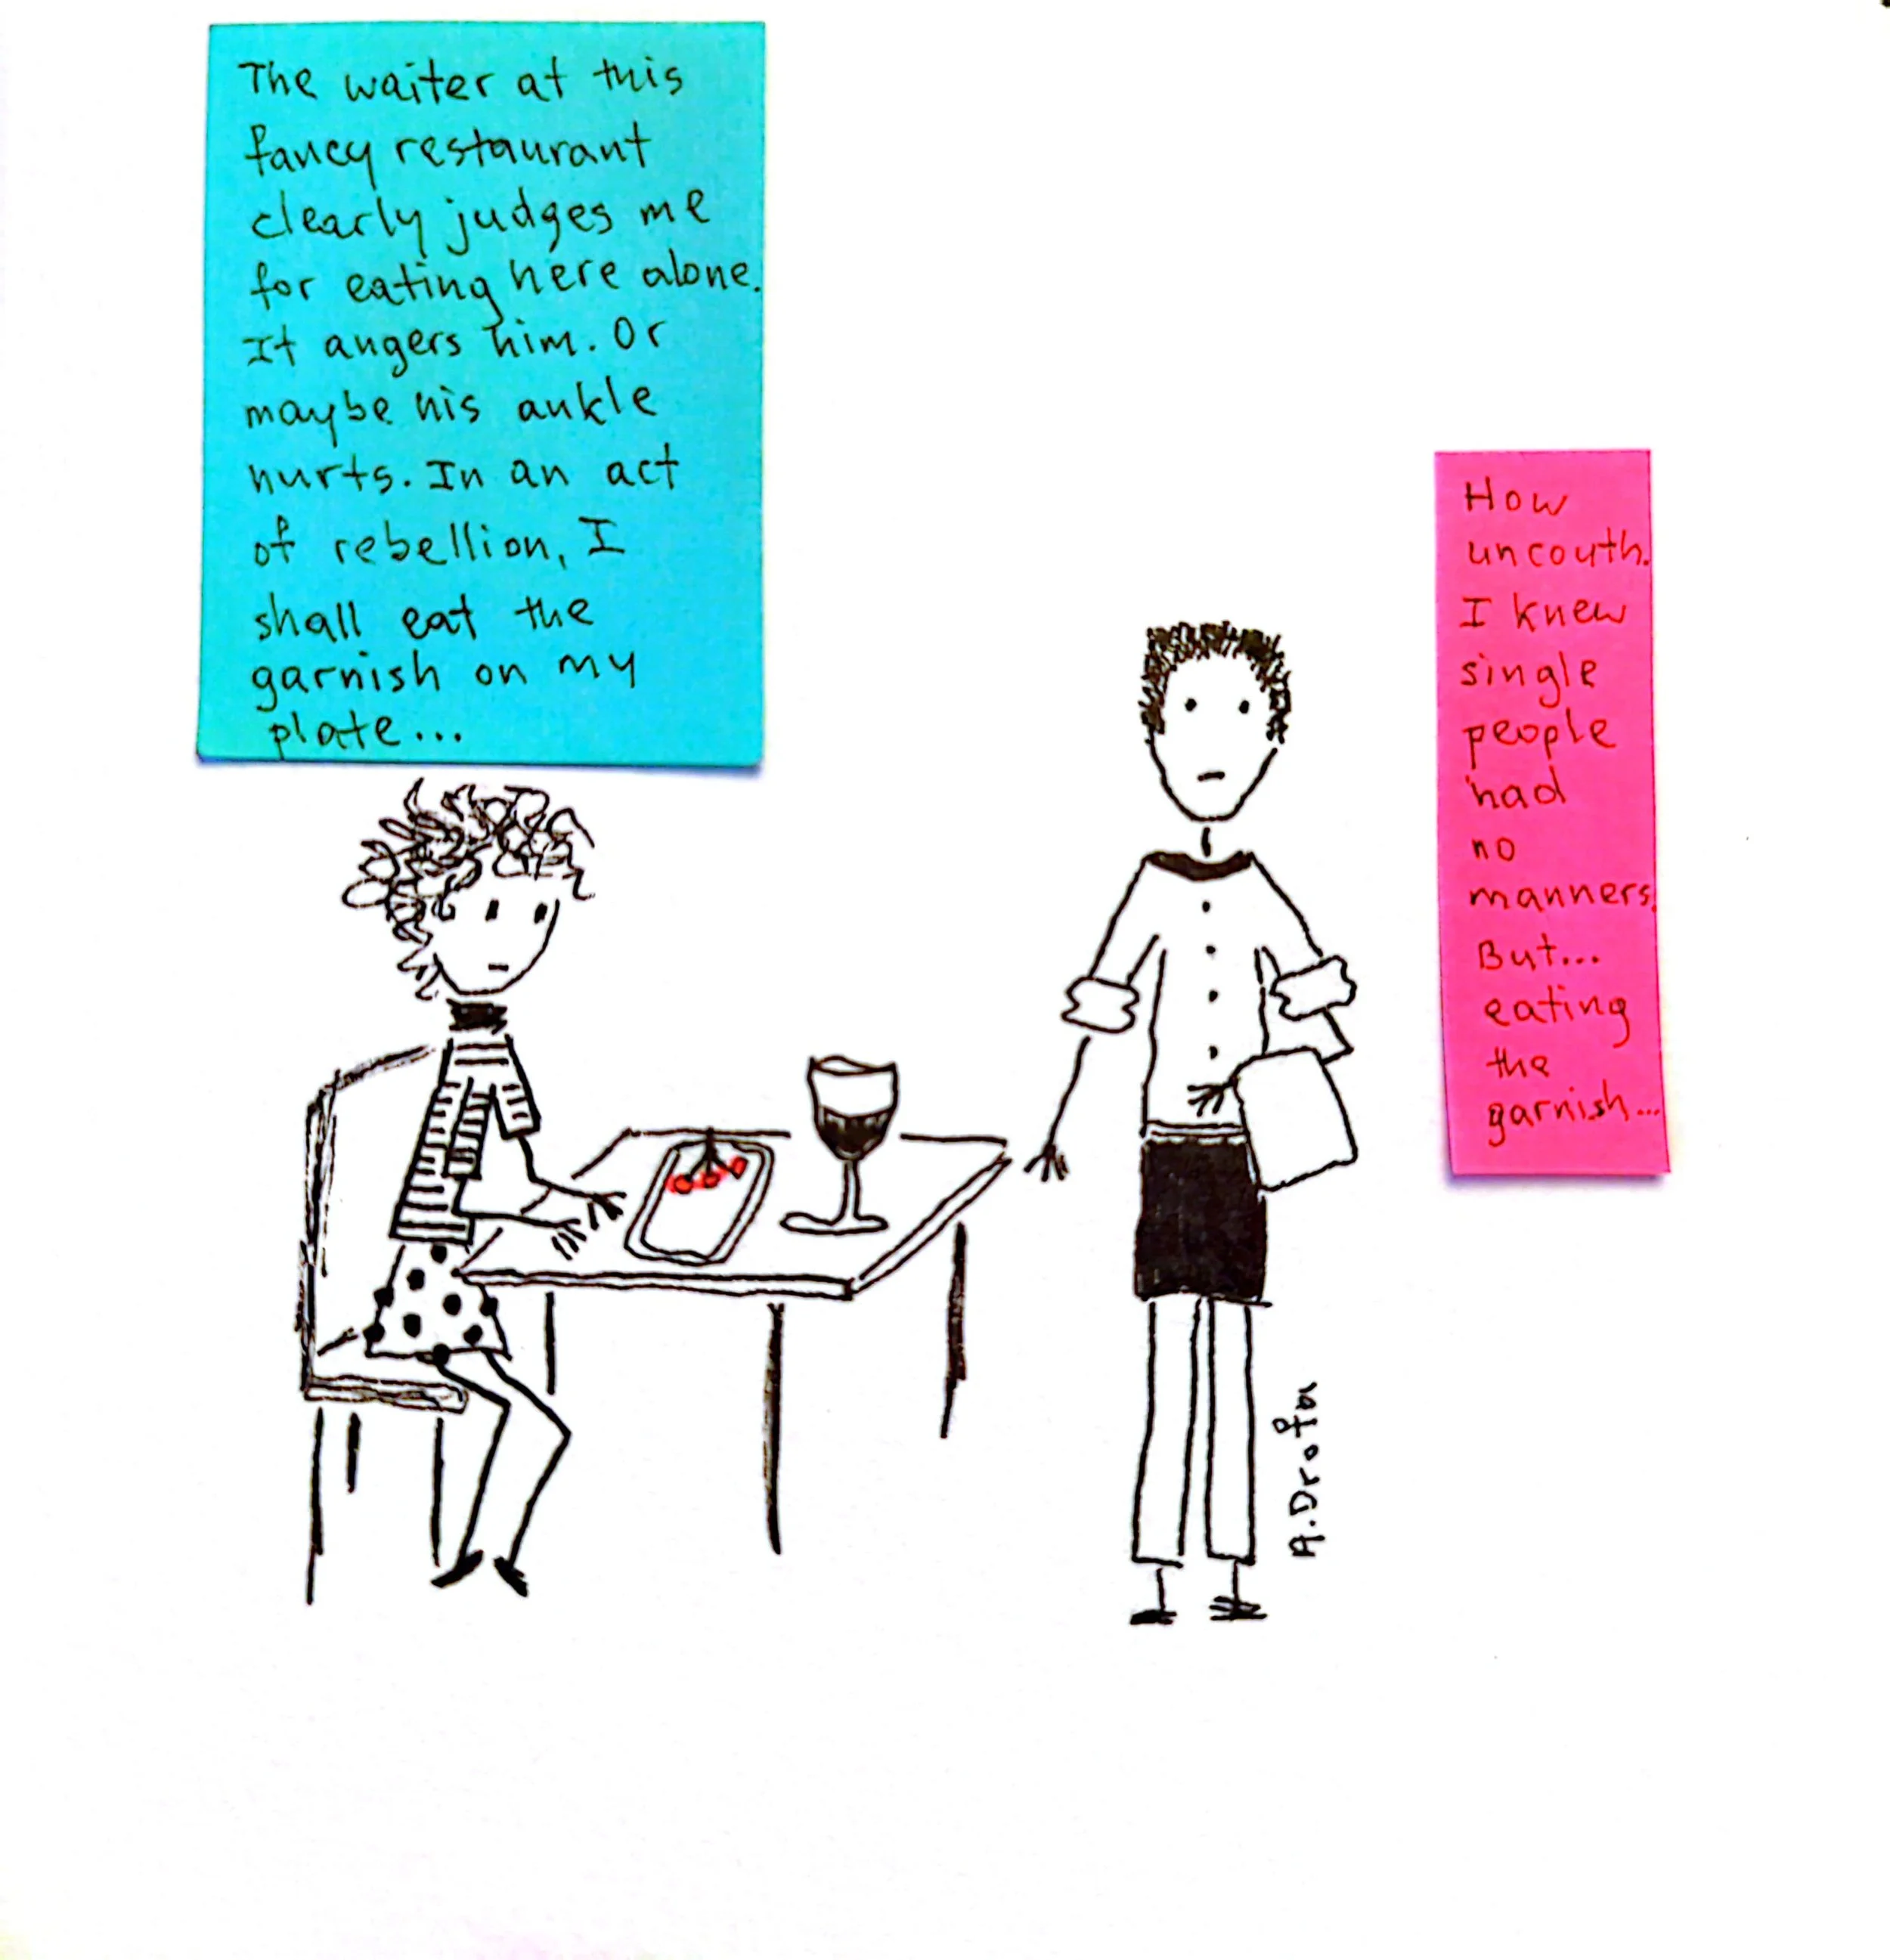 The waiter at this
fancy restaurant
clearly judges me
for eating here alone.
It angers him. Or
maybe his ankle
hurts. In an act
of rebellion, I
shall eat the
garnish on my
plate...
How
uncouth.
I knew
single
people
had
no
manners.
But...
eating
the
garnish...
A. Drofa